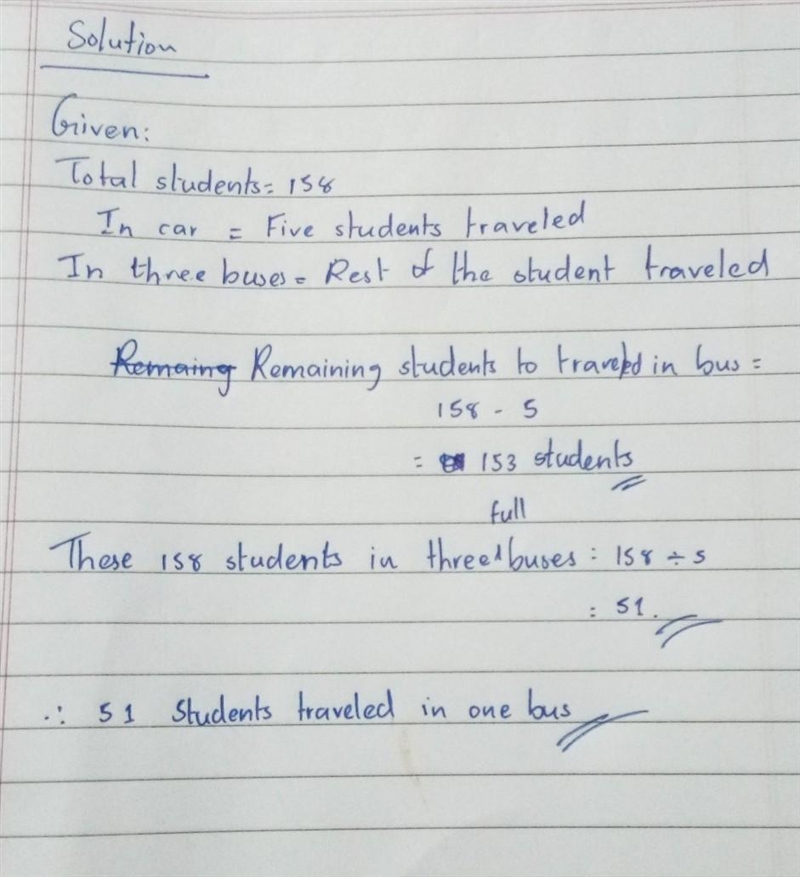 Solution
Given:
Total students= 158
In car = Five students traveled
In three buses= Rest of the student traveled
Remaing Remaining students to traveled in bus =
158 - 5
= 153 students
full
These 158 students in three buses : 158 ÷ 5
: 51.
∴ 51 Students traveled in one bus